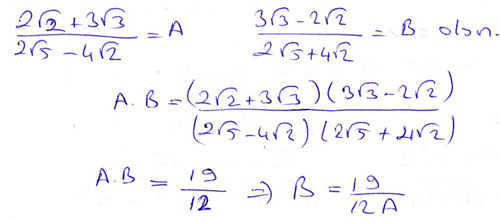 (2√2 + 3√3)/(2√5 - 4√2) = A (3√3 - 2√2)/(2√5 + 4√2) = B olsn.
A.B = (2√2 + 3√3)(3√3 - 2√2)/(2√5 - 4√2)(2√5 + 4√2)
A.B = 19/12 ⇒ B = 19/12A